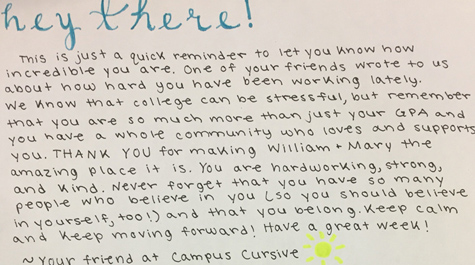 hey there!
This is just a quick reminder to let you know how
incredible you are. One of your friends wrote to us
about how hard you have been working lately.
We know that college can be stressful, but remember
that you are so much more than just your GPA and
you have a whole community who loves and supports
you. THANK YOU for making William + Mary the
amazing place it is. You are hardworking, strong,
and kind. Never forget that you have so many
people who believe in you (so you should believe
in yourself, too!) and that you belong. Keep calm
and keep moving forward! Have a great week!
~ Your friend at Campus Cursive